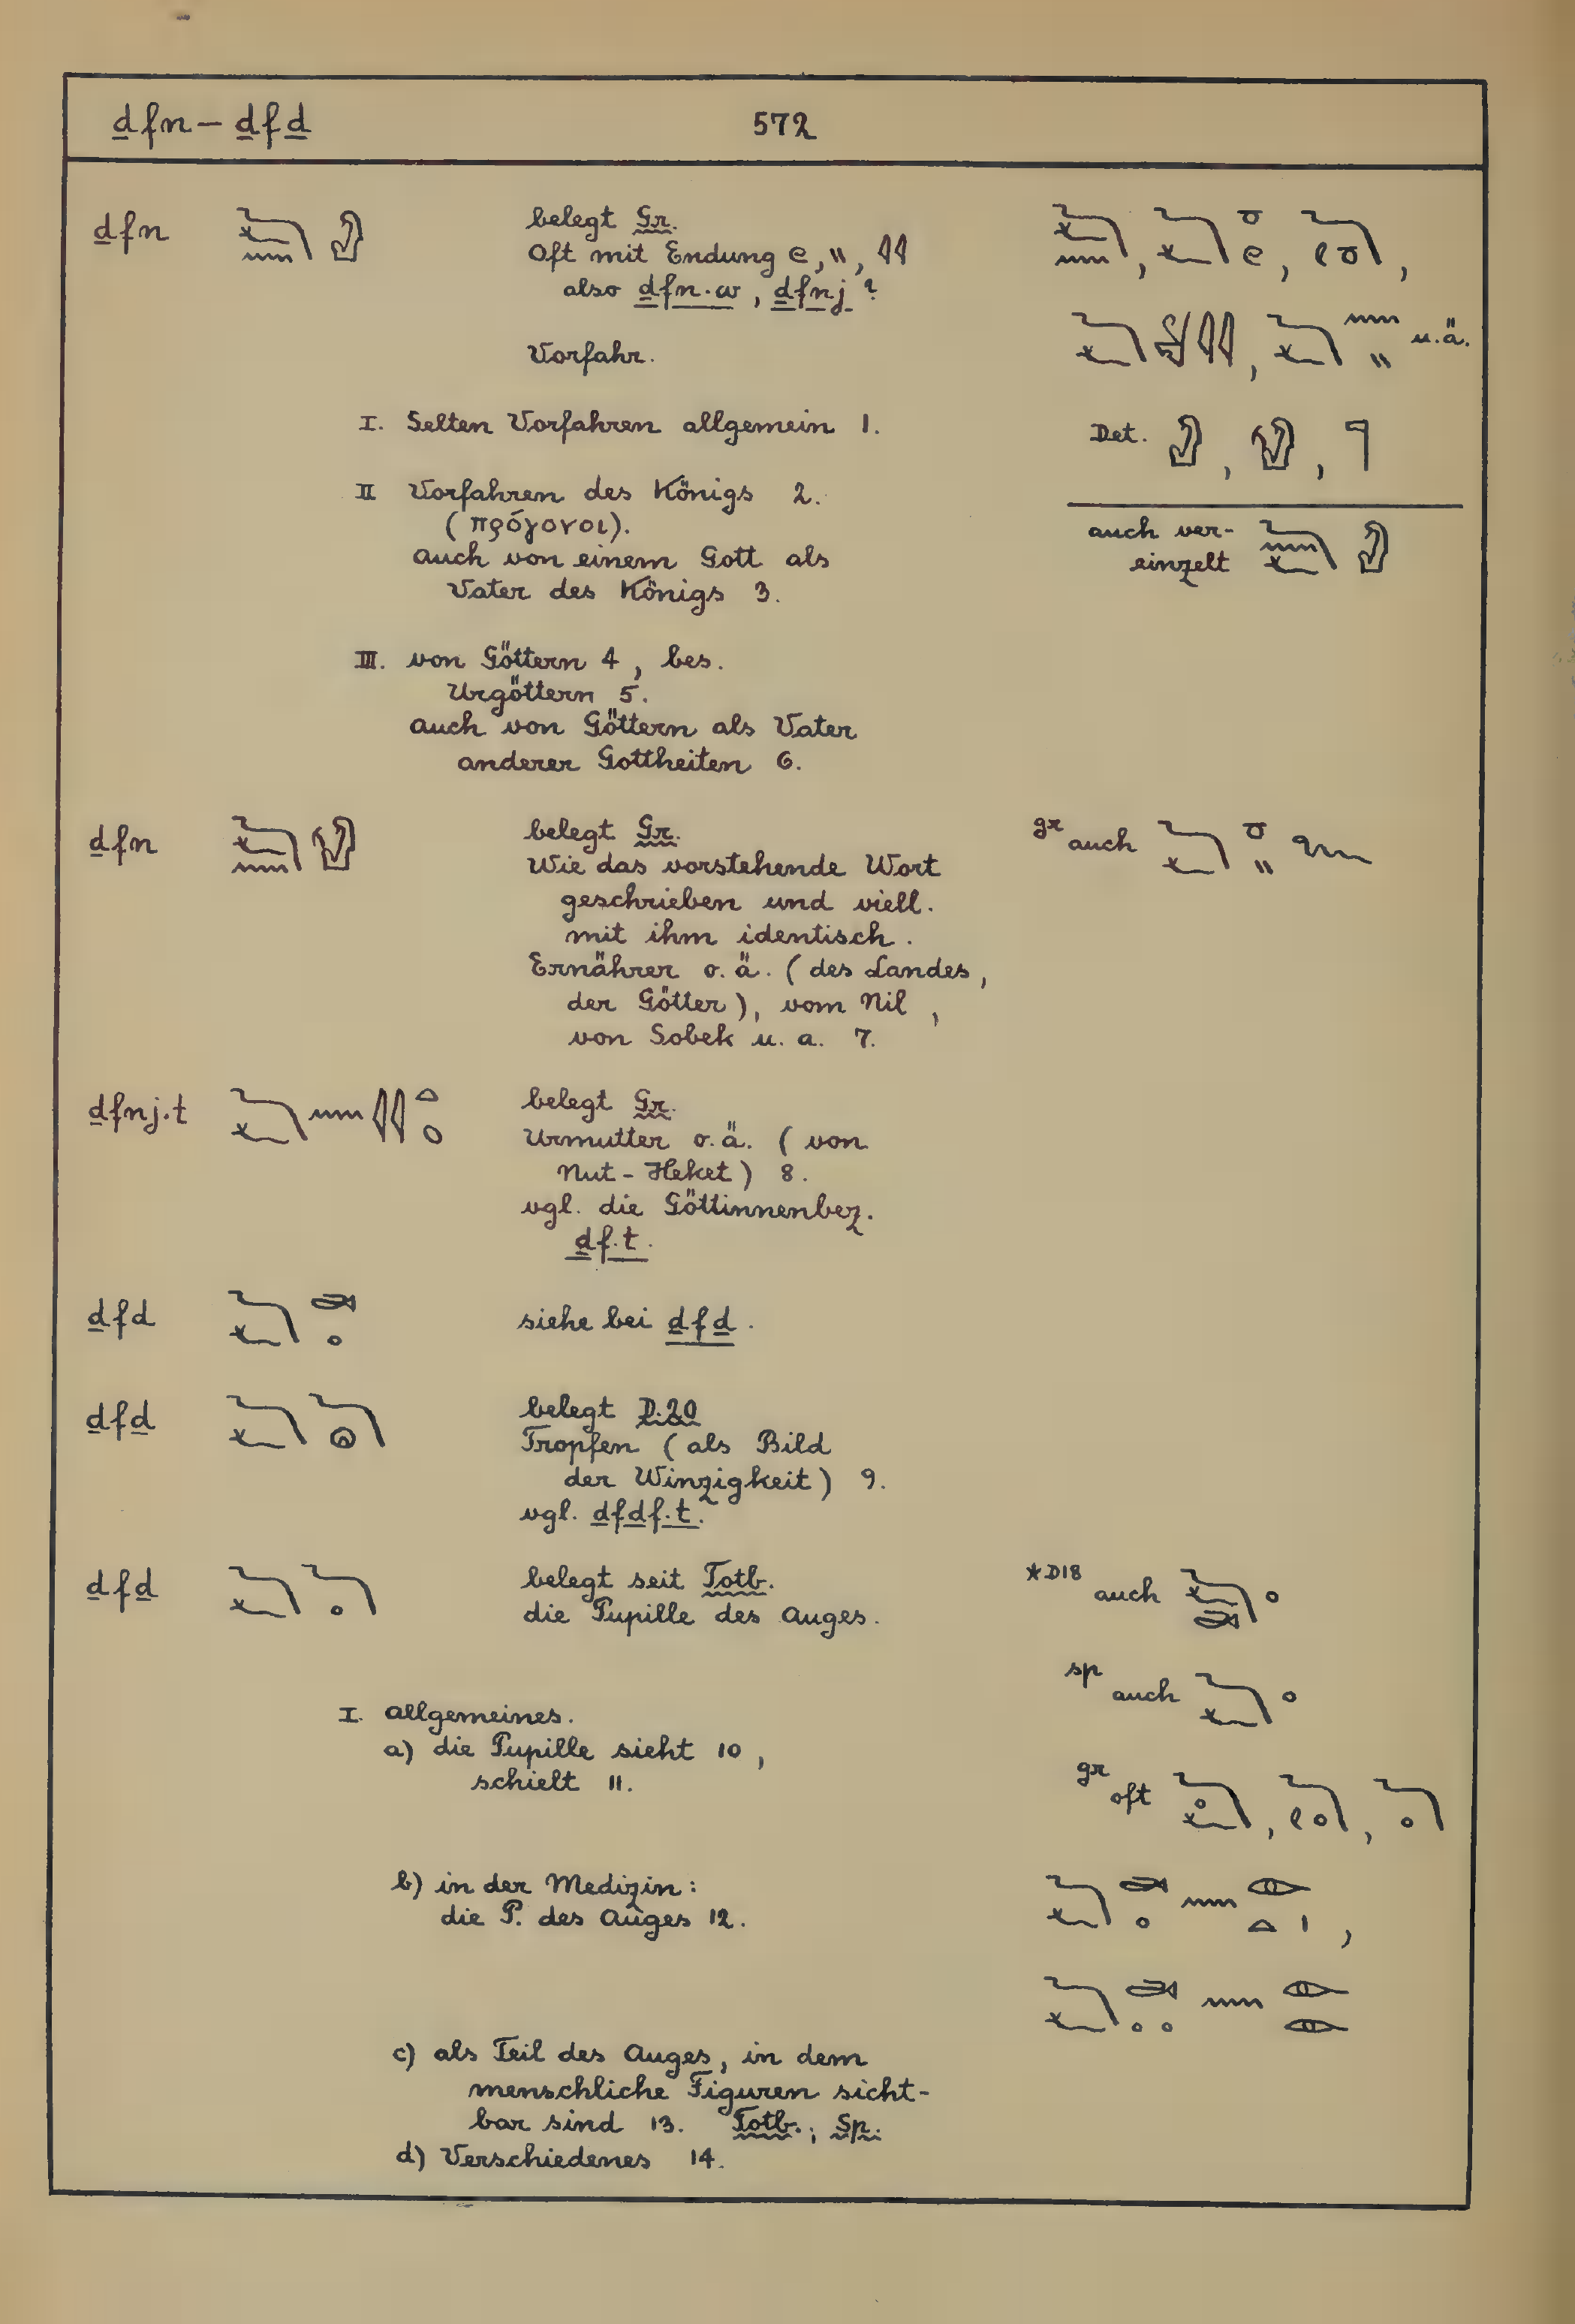 ḏfn – ḏfḏ 572
ḏfn 𓆓𓆑𓈖 belegt Gr.
Oft mit Endung 𓏲, 𓏭, 𓇌
also ḏfn.w, ḏfnj ?
Vorfahr.
u.ä.
I. Selten Vorfahren allgemein 1.
Det.
II Vorfahren des Königs 2.
(πρόγονοι).
auch von einem Gott als
Vater des Königs 3.
auch ver-
einzelt
III. von Göttern 4, bes.
Urgöttern 5.
auch von Göttern als Vater
anderer Gottheiten 6.
ḏfn 𓆓𓆑𓈖 belegt Gr.
gr auch
Wie das vorstehende Wort
geschrieben und viell.
mit ihm identisch.
Ernährer o.ä. (des Landes,
der Götter), vom Nil,
von Sobek u. a. 7.
ḏfnj.t 𓆓𓆑𓈖𓇌𓏏𓆇 belegt Gr.
Urmutter o.ä. (von
Nut-Heket) 8.
vgl. die Göttinnenbez.
ḏf.t.
ḏfd 𓆓𓆑𓂧𓈒 siehe bei ḏfḏ.
ḏfḏ 𓆓𓆑𓆓 belegt D.20
Tropfen (als Bild
der Winzigkeit) 9.
vgl. ḏfḏf.t.
ḏfḏ 𓆓𓆑𓆓𓈒 belegt seit Totb.
die Pupille des Auges.
*D18 auch 𓆓𓆑𓂧𓈒
sp auch 𓆓𓆑𓈒
I. Allgemeines.
a) die Pupille sieht 10,
schielt 11.
gr oft
b) in der Medizin:
die P. des Auges 12.
𓆓𓆑𓂧𓈒𓈖𓁹𓏏𓏤,
𓆓𓆑𓂧𓈒𓈒𓈖𓁹𓁹
c) als Teil des Auges, in dem
menschliche Figuren sicht-
bar sind 13. Totb.; Sp.
d) Verschiedenes 14.